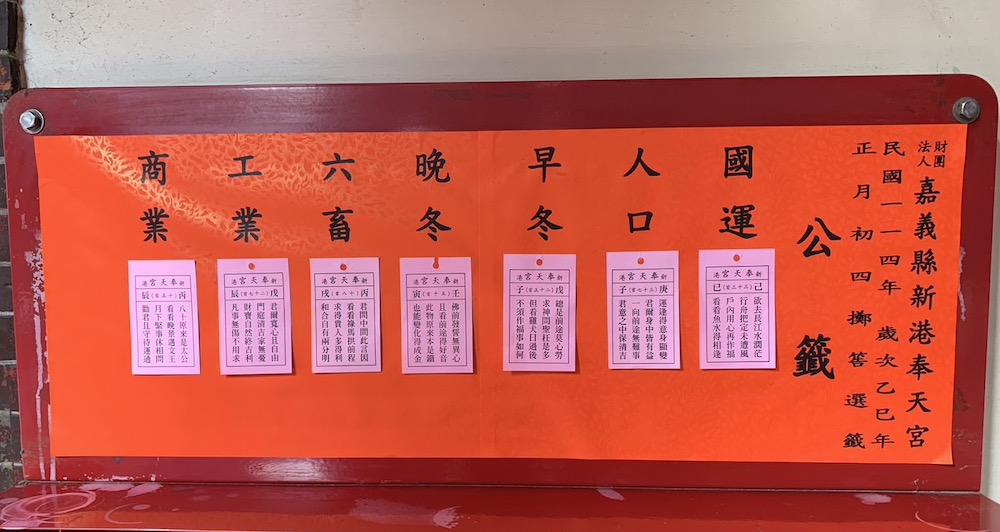 財團
法人
嘉義縣新港奉天宮
民國一一四年歲次乙巳年
正月初四擲筶選籤
公籤
國運
新港奉天宮
己(三十三首)巳
欲去長江水濶茫
行舟把定未遭風
戶內用心再作福
看看魚水得相逢
人口
新港奉天宮
庚(三十七首)子
運逢得意身顯變
君爾身中皆有益
一向前途無難事
君意之中保清吉
早冬
新港奉天宮
戊(二十五首)子
總是前途莫心勞
求神問聖枉是多
但看雞犬日過後
不須作福事如何
晚冬
新港奉天宮
壬(五十首)寅
佛前發誓無異心
且看前途得好音
此物原來本是鐵
也能變化得成金
六畜
新港奉天宮
丙(十八首)戌
君問中間此言因
看看祿馬拱前程
求得貴人多得利
和合自有兩分明
工業
新港奉天宮
戊(二十七首)辰
君爾寬心且自由
門庭清吉家無憂
財寶自然終吉利
凡事無傷不用求
商業
新港奉天宮
丙(十五首)辰
八十原來是太公
看看晚景遇文王
月下緊事休相問
勸君且守待運通